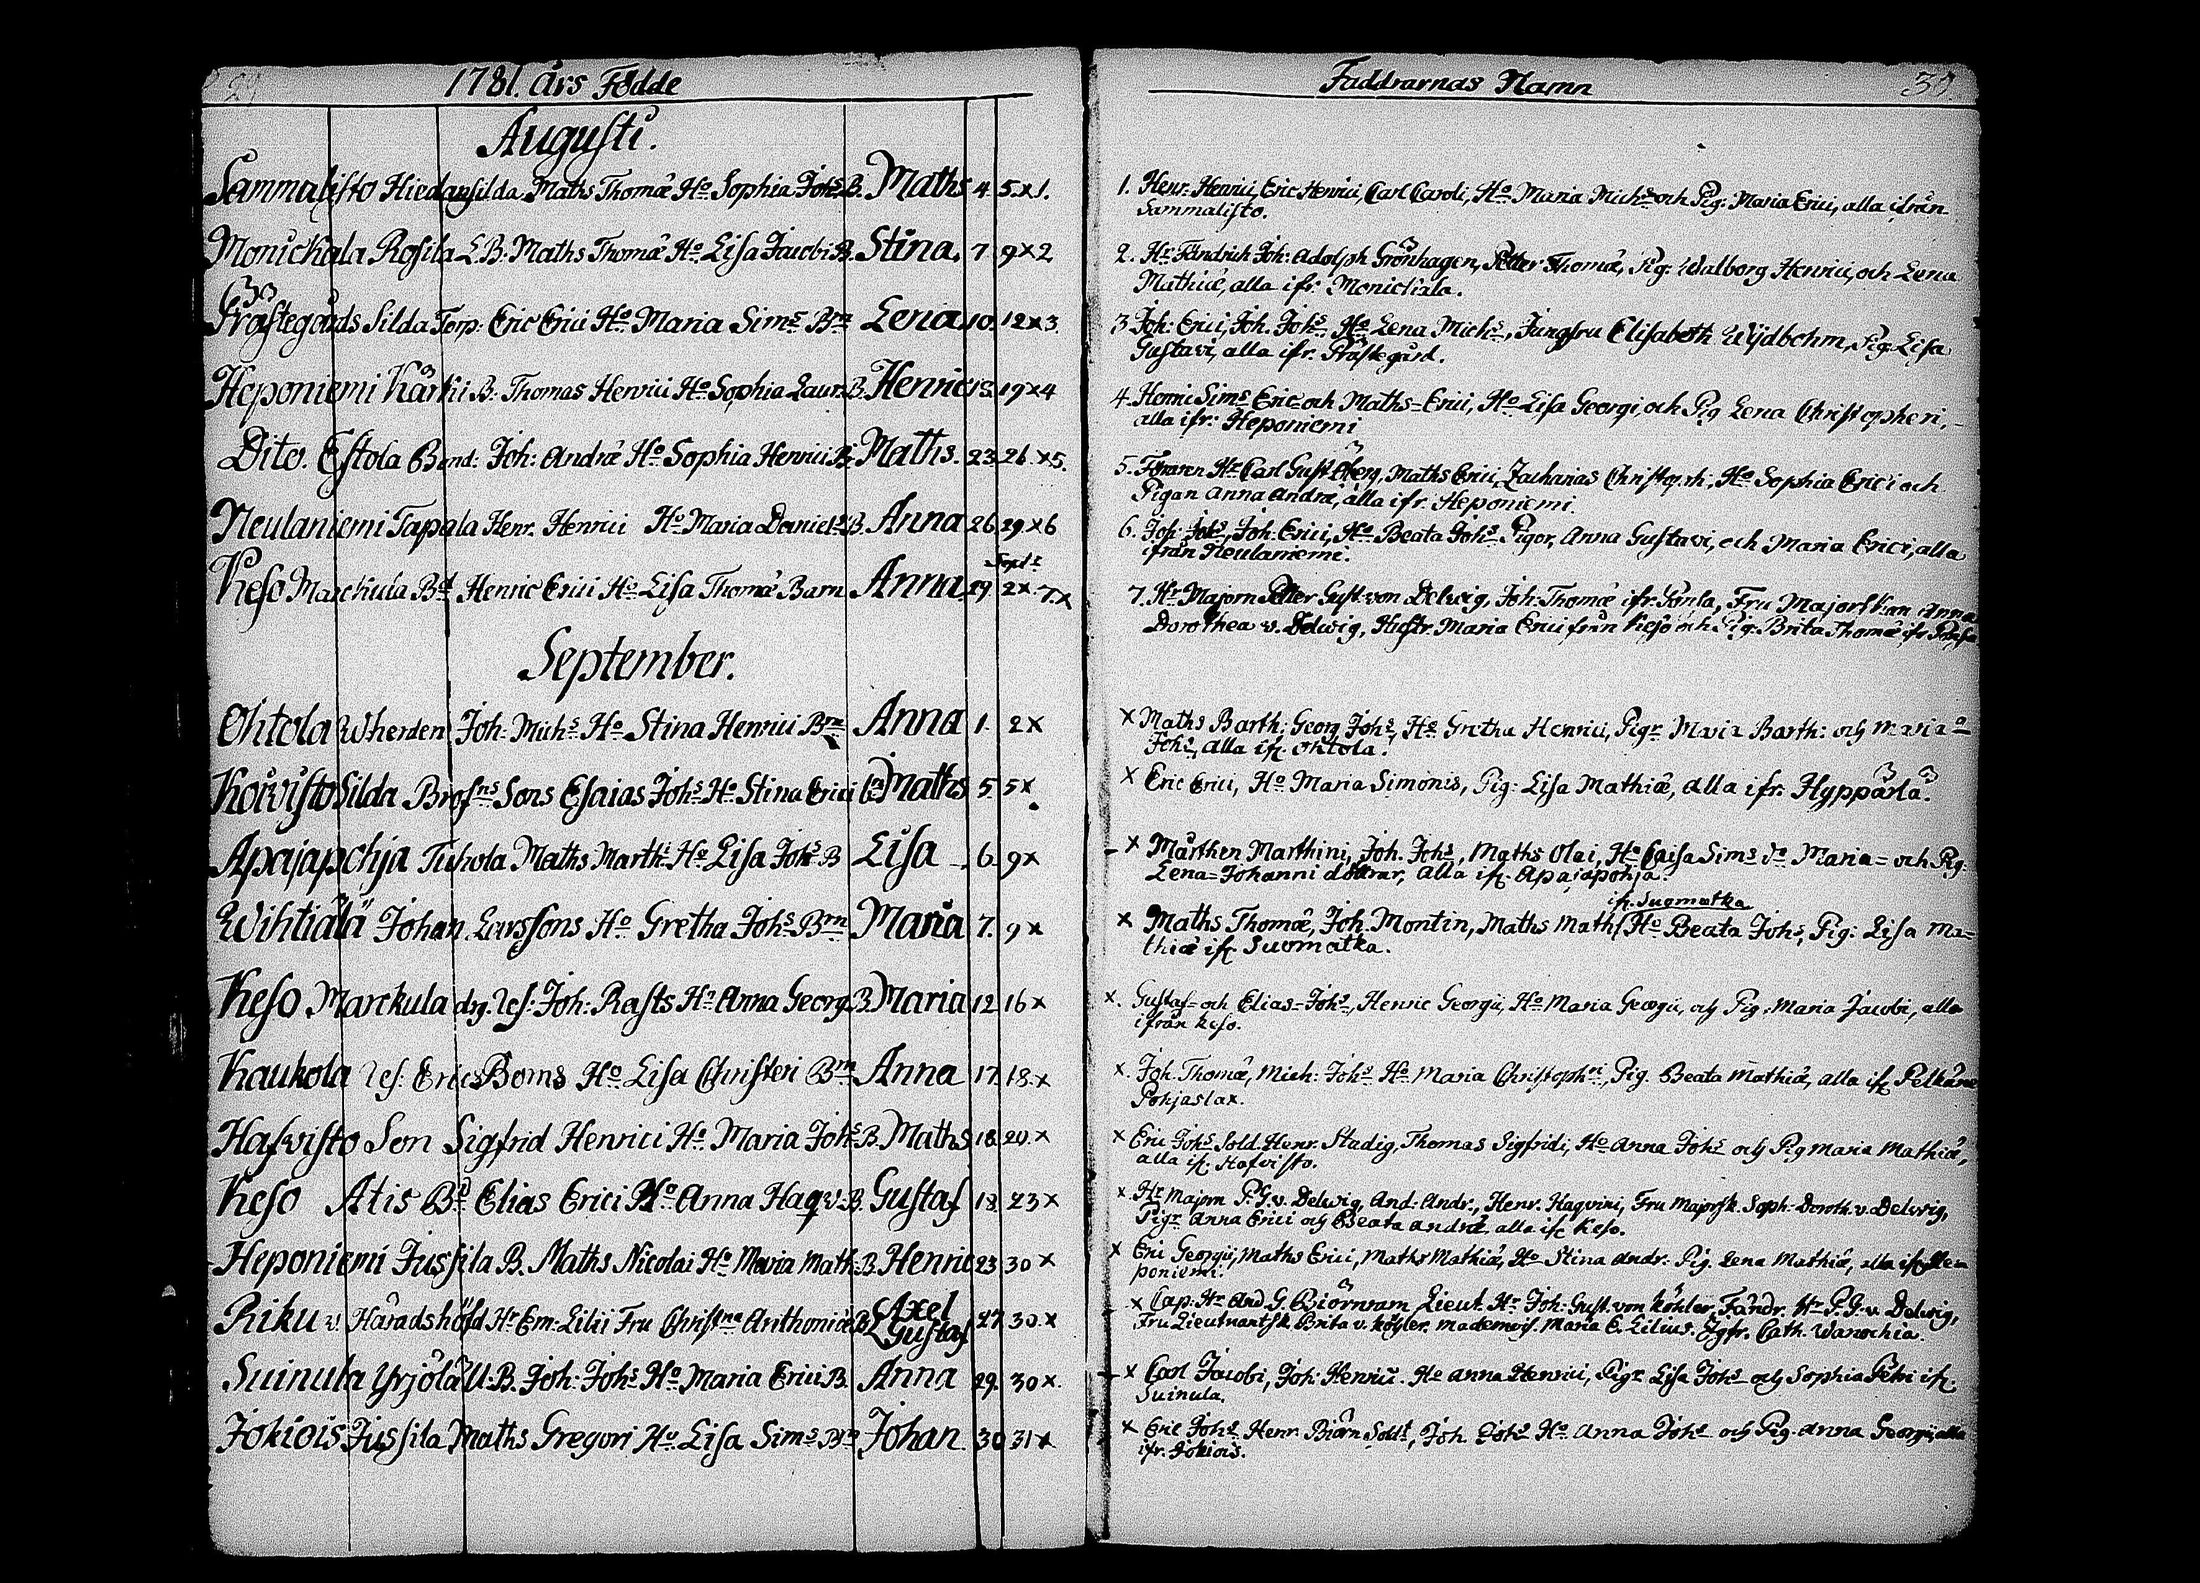 29
1781. års Födde
Augusti.
Sammalisto Hiedansilda Maths Thomæ Ho Sophia Johs B. Maths 4. 5. x 1.
Monickala Rosila L.B. Maths Thomæ Ho Lisa Jacobi B. Stina. 7. 9 x 2
Prästegårds Silda Torp: Eric Erici Ho Maria Sims Brn Lena 10. 12 x 3.
Heponiemi Kärki B. Thomas Henrici Ho Sophia Laur: B. Henric 13. 19 x 4
Dito. Estola Bond: Joh: Andræ Ho Sophia Henrici B. Maths. 23. 26. x 5.
Neulaniemi Tapala Henr. Henrici Ho Maria Daniels B. Anna 26. 29 x 6
Sept:
Keso Marckula Bd Henric Erici Ho Lisa Thomæ Barn Anna 29. 2 x 7. x
September.
Ohtola Joh. Michs Ho Stina Henrici Brn Anna 1. 2 x
Koivisto Silda Brofns Sons Esaias Johs Ho Stina Erici Bn Maths 5 5 x
Apajapohja Tuhola Maths Marth: Ho Lisa Johs B Lisa 6. 9 x
Wihtiälä Johan Larssons Ho Gretha Johs Brn Maria 7. 9 x
Keso Marckula drg. Joh: Rasts Ho Anna Georg. B. Maria 12 16 x
Kaukola Eric Boms Ho Lisa Christeri Brn Anna 17. 18. x
Hafvisto Son Sigfrid Henrici Ho Maria Johs B. Maths 18. 20. x
Keso Atis Bd Elias Erici Ho Anna Haqv. B. Gustaf 18. 23 x
Heponiemi Jussila B. Maths Nicolai Ho Maria Math: B. Henric 23 30 x
Riku Häradshöfd Hr Em: Lilii Fru Christna Anthoniæ B Axel Gustaf 27 30. x
Suinula Yrjölä U.B. Joh: Johs Ho Maria Erici B. Anna 29. 30 x.
Jokiois Jussila Maths Gregori Ho Lisa Sims Brn Johan 30 31 x
Faddrarnas Namn 30.
1. Henr. Henrici, Eric Henrici, Carl Caroli, Ho Maria Michs och Pig: Maria Erici, alla ifrån
Sammalisto.
2. Hr Fändrich Joh: Adolph Grönhagen, Petter Thomæ, Pig: Walborg Henrici, och Lena
Mathiæ, alla ifr: Monickala.
3 Joh: Erici, Joh. Johs Ho Lena Michs, Jungfru Elisabeth Wijdbohm, Pig: Lisa
Gustavi, alla ifr. Prästegård.
4. Henric Sims Eric= och Maths= Erici, Ho Lisa Georgi, och Pig Lena Christopheri,
alla ifr: Heponiemi
5. Hr Carl Gust Öberg, Maths Erici, Zacharias Christoph:, Ho Sophia Erici och
Pigan Anna Andræ, alla ifr. Heponiemi.
6. Joh: Johs, Joh: Erici, Ho Beata Johs Pigor, Anna Gustavi, och Maria Erici, alla
ifrån Neulaniemi.
7. Hr Majorn Petter Gust. von Delwig, Joh: Thomæ ifr. Fru Majorskan Anna
Dorothea v. Delwig, Hustr. Maria Erici från Keso och Pig: Brita Thomæ ifr
x Maths Barth: Georg Johs, Ho Gretha Henrici, Pigr Maria Barth: och Maria
Johs, alla ifr. Ohtola.
x Eric Erici, Ho Maria Simonis, Pig: Lisa Mathiæ, alla ifr. Hyppärlä.
x Mårthen Marthini, Joh. Johs, Maths Olai, Ho Caisa Sims Maria= och Pig.
Lena= Johanni döttrar, alla ifr. Apajapohja.
ifr. Suomatka
x Maths Thomæ, Joh. Montin, Maths Math/ Ho Beata Johs, Pig: Lisa Ma=
thiæ ifr. Suomatka.
x. Gustaf= och Elias= Johs, Henric Georgii, Ho Maria Georgii, och Pig: Maria Jacobi, alla
ifrån Keso.
x. Joh. Thomæ, Mich: Johs Ho Maria Christophri, Pig. Beata Mathiæ, alla ifr. Pelkäne
Pohjaslax.
x Eric Johs Sold. Henr. Stadig, Thomas Sigfridi, Ho Anna Johs och Pig Maria Mathiæ,
alla ifr. Hafvisto.
x Hr Majorn P.G. v. Delwig, And. Andr., Henr. Haqvini, Fru Majorsk. Soph: Doroth. v. Delwig,
Pigr Anna Erici och Beata Andræ alla ifr. Keso.
x Eric Georgii, Maths Erici, Maths Mathiæ, Ho Stina Andr. Pig. Lena Mathiæ, alla ifr. He=
poniemi.
x Cap: Hr And. G. Biörnram, Lieut. Hr Joh: Gust. von Köhler, Fändr. Hr P.G. v. Delwig,
Fru Lieutnantsk. Brita v. Köhler. Mademois. Maria E. Lilius. Jgfr. Cath. Wanochia.
x Carl Jacobi, Joh: Henrici. Ho Anna Henrici, Pigr Lisa Johs och Sophia Petri ifr.
Suinula.
x Eric Johs Henr. Biörn Soldt, Joh. Johs Ho Anna Johs och Pig. Anna Georgii, alla
ifr. Jokiois.